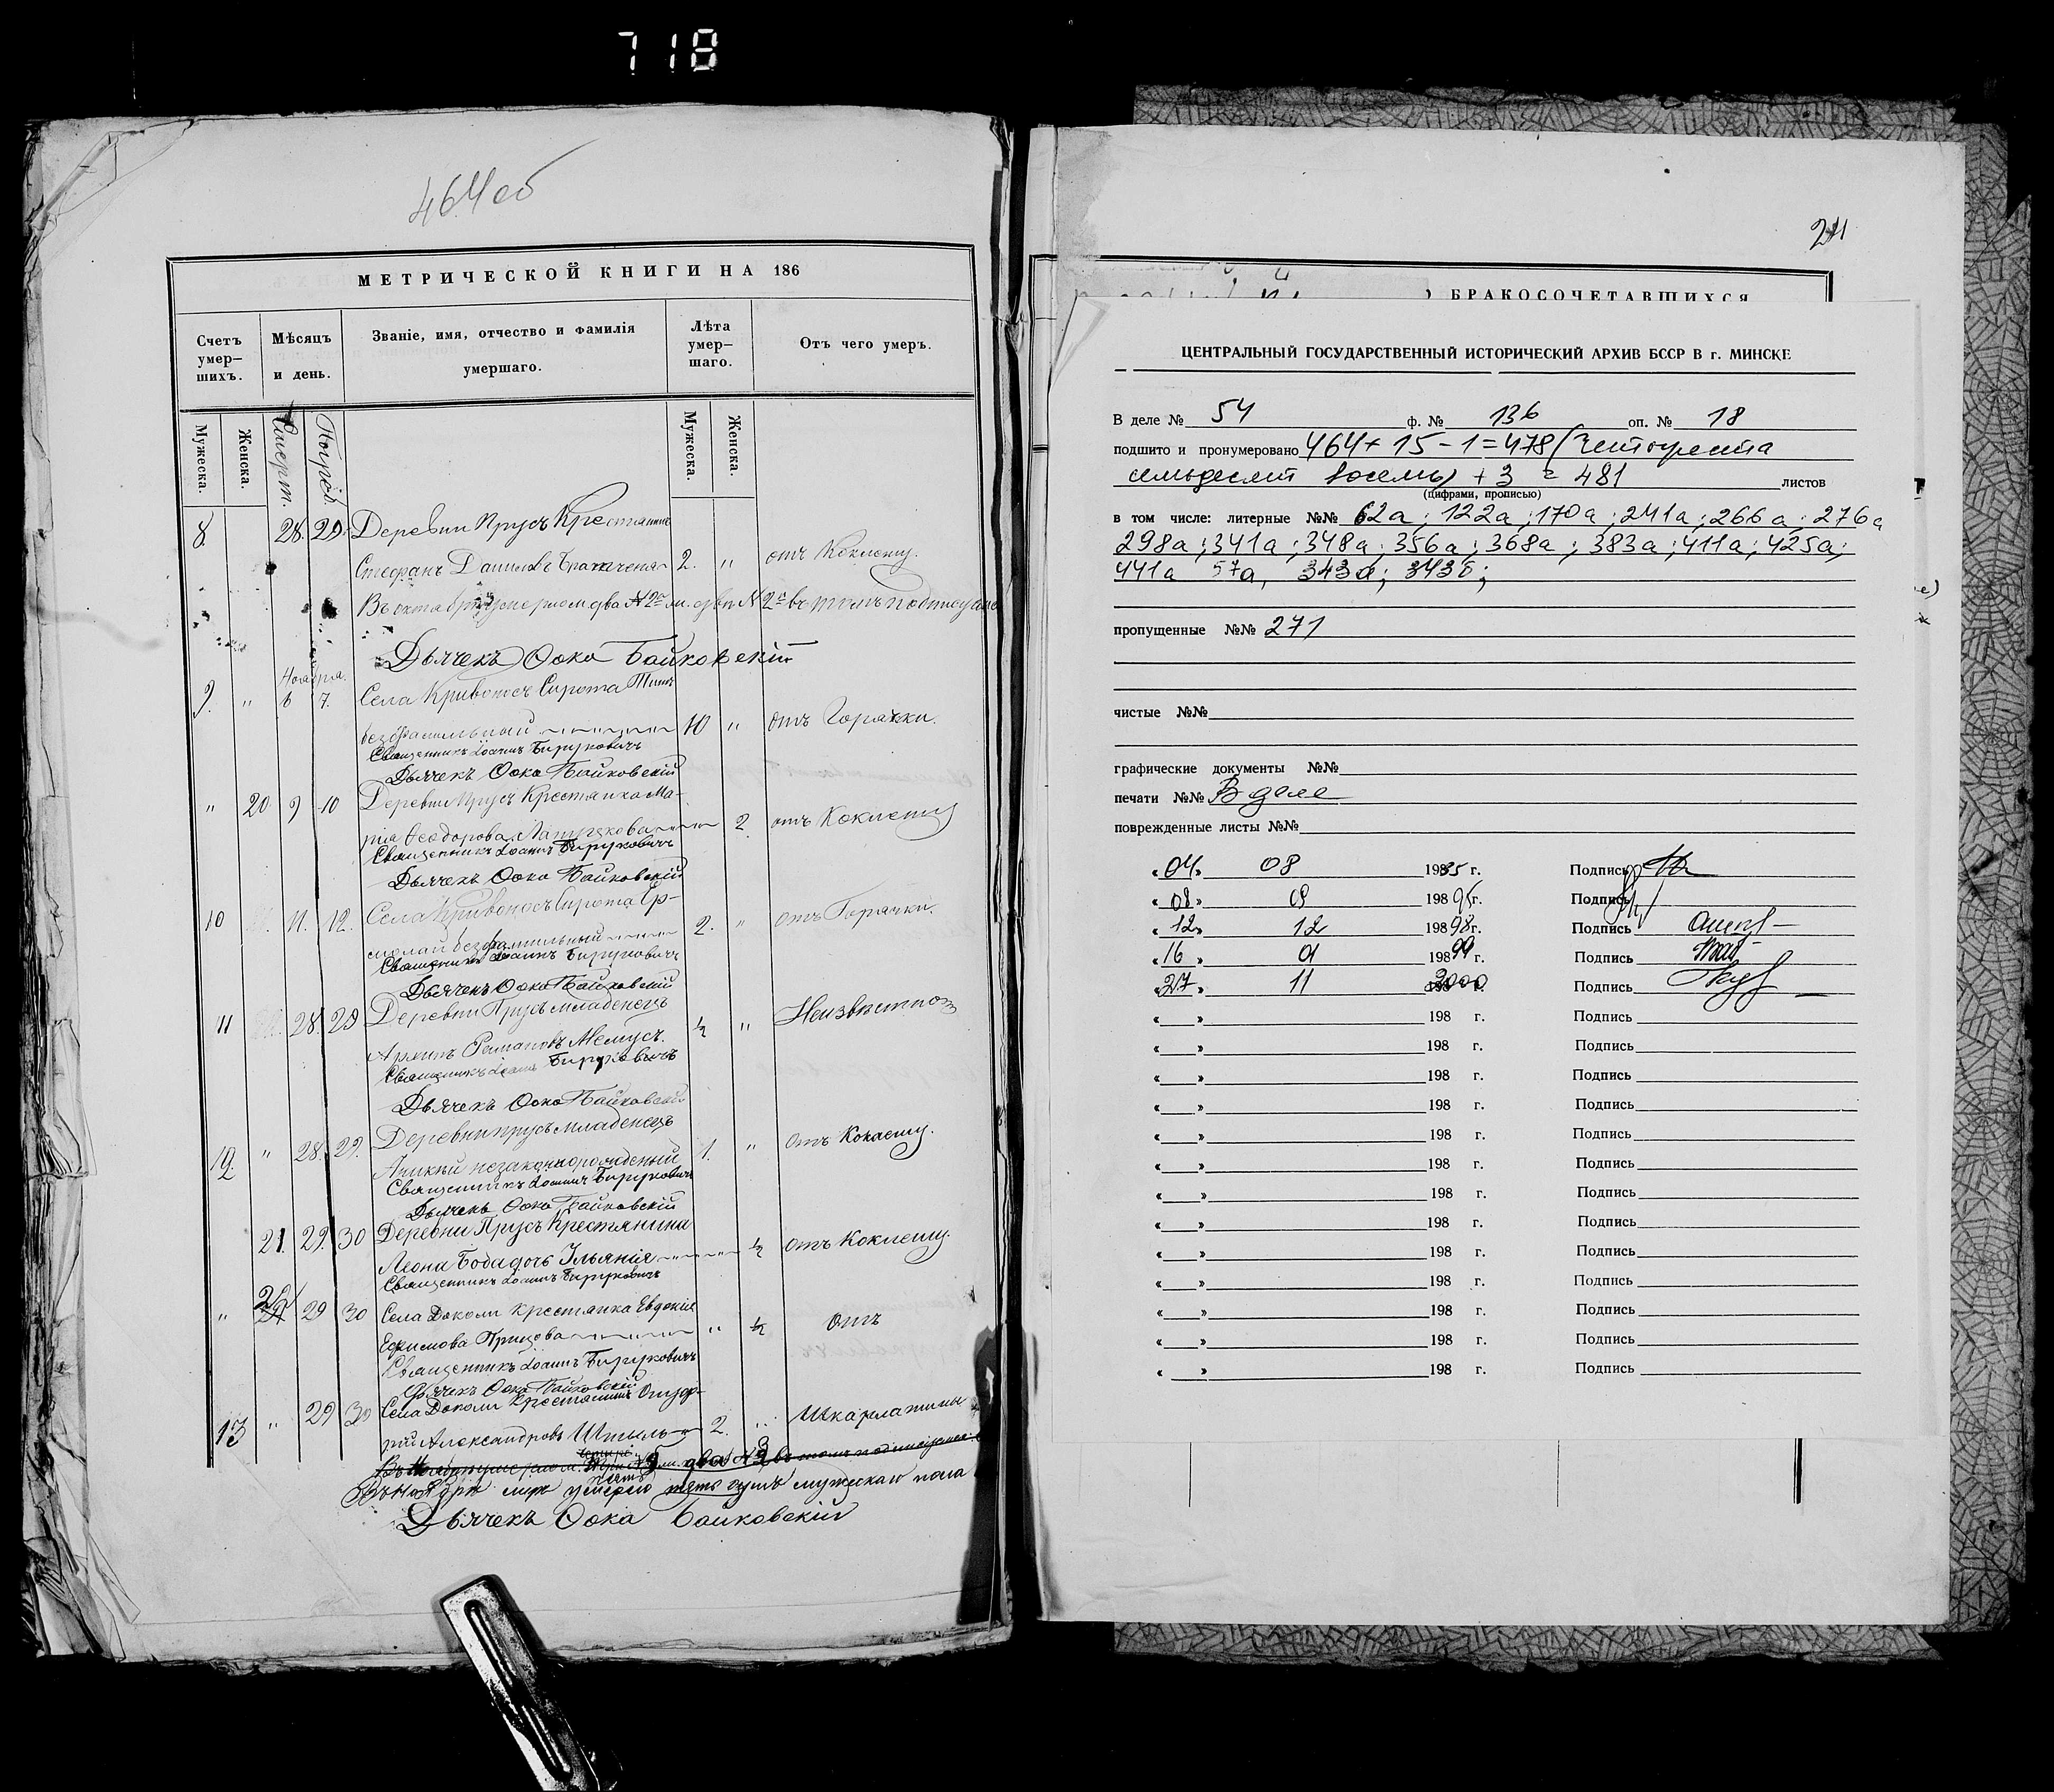 718
464 об
МЕТРИЧЕСКОЙ КНИГИ НА 186
Счетъ умер-шихъ.
Мѣсяцъ и день.
Званіе, имя, отчество и фамилія умершаго.
Лѣта умер-шаго.
Отъ чего умеръ.
Мужеска.
Женска.
Смерт.
Погреб.
Мужеска.
Женска.
8. 28. 29. Деревни Прусъ Крестянинъ
Стефанъ Даниловъ 2. " отъ Коклешу.
Въ октабрѣ
Дьячекъ Ѳока Байковскій
Ноября.
9. " 6 7. Села Кривоносъ Сирота
безфамильный 10 " отъ Горячки.
Священникъ Іоаннъ Бируковичъ
Дьячекъ Ѳока Байковскій
" 20. 9 10 Деревни Прусъ Крестянка Ма-
рія Ѳеодорова 2. отъ Коклешу
Священникъ Іоаннъ Бируковичъ
Дьячекъ Ѳока Байковскій
10 11. 12. Села Кривоносъ Сирота Ер-
молай безфамильный 2. " отъ Горячки.
Священникъ Іоаннъ Бируковичъ
Дьячекъ Ѳока Байковскій
11 28. 29 Деревни Прусъ младенецъ
Романовъ ½ " Неизвѣстно
Священникъ Іоаннъ Бируковичъ
Дьячекъ Ѳока Байковскій
12. " 28. 29. Деревни Прусъ младенецъ
незаконнорожденый 1. " отъ Коклешу.
Священникъ Іоаннъ Бируковичъ
Дьячекъ Ѳока Байковскій
21. 29. 30 Деревни Прусъ Крестянина
Леона дочь Ульянія ½ отъ Коклешу.
Священникъ Іоаннъ Бируковичъ
" 29 30 Села Доколи крестянка Евдокія
Ефимова " ½ отъ
Священникъ Іоаннъ Бируковичъ
Дьячекъ Ѳока Байковскій
13 " 29 30 Села Доколи Крестянинъ Онуф-
рій Александровъ 2. " Шкарлатины
пять душъ мужескаго пола
Дьячекъ Ѳока Байковскій
24
) БРАКОСОЧЕТАВШИХСЯ
ЦЕНТРАЛЬНЫЙ ГОСУДАРСТВЕННЫЙ ИСТОРИЧЕСКИЙ АРХИВ БССР В г. МИНСКЕ
В деле № 54 ф. № 136 оп. № 18
подшито и пронумеровано 464 + 15 - 1 = 478 (Четыреста
семьдесят восемь) + 3 = 481 листов
(цифрами, прописью)
в том числе: литерные №№ 62а; 122а; 170а; 241а; 266а; 276а
298а; 341а; 348а; 356а; 368а; 383а; 411а; 425а;
441а 57а, 343а; 343б;
пропущенные №№ 271
чистые №№
графические документы №№
печати №№ В деле
поврежденные листы №№
« 04 » 08 1985 г. Подпись
« 08 » 09 198 95 г. Подпись
« 12 » 12 198 98 г. Подпись
« 16 » 01 198 99 г. Подпись
« 27 » 11 2000 Подпись
« » 198 г. Подпись
« » 198 г. Подпись
« » 198 г. Подпись
« » 198 г. Подпись
« » 198 г. Подпись
« » 198 г. Подпись
« » 198 г. Подпись
« » 198 г. Подпись
« » 198 г. Подпись
« » 198 г. Подпись
« » 198 г. Подпись
« » 198 г. Подпись
« » 198 г. Подпись